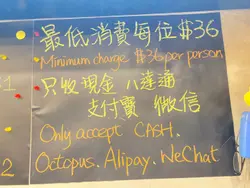 最低消費每位$36
Minimum charge $36 per person
只收現金 八達通
支付寶 微信
Only accept CASH.
Octopus. Alipay. WeChat
1
2